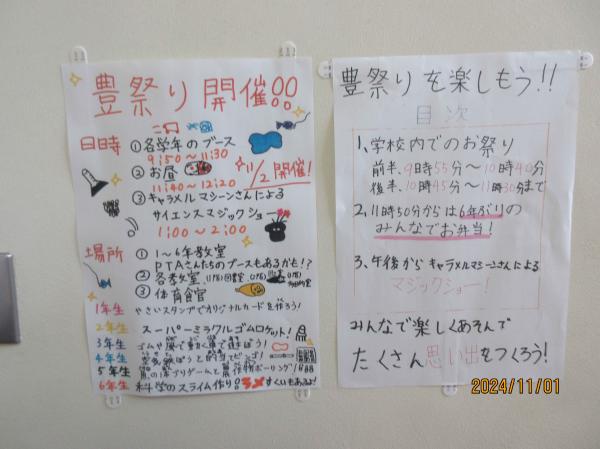 豊祭り開催!!
日時
①各学年のブース
9:50~11:30
②お昼
11:40~12:20
11/2開催!
③キャラメルマシーンさんによる
サイエンスマジックショー
1:00~2:00
場所
①1~6年教室
PTAさんたちのブースもあるかも!?
②各教室
③体育館
1年生 やさいスタンプでオリジナルカードを作ろう!
2年生 スーパーミラクルゴムロケット!
3年生 ゴムや風で動く車で遊ぼう!
4年生
5年生
6年生 科学のスライム作り
すくいもあるよ!
豊祭りを楽しもう!!
目次
1、学校内でのお祭り
前半、9時55分~10時40分
後半、10時45分~11時30分まで
2、11時50分からは6年ぶりの
みんなでお弁当!
3、午後からキャラメルマシーンさんによる
マジックショー!
みんなで楽しくあそんで
たくさん思い出をつくろう!
2024/11/01